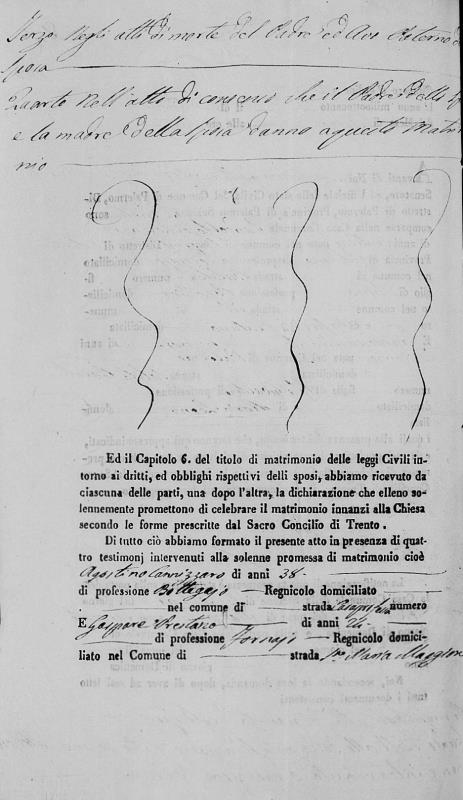 Terzo Negli atti di morte del Padre ed Avo Paterno d
Sposa
Quarto Nell'atto di consenso che il Padre dello Sp
e la madre della Sposa danno a questo Matri
nio
Ed il Capitolo 6. del titolo di matrimonio delle leggi Civili in-
torno ai dritti, ed obblighi rispettivi delli sposi, abbiamo ricevuto da
ciascuna delle parti, una dopo l'altra, la dichiarazione che elleno so-
lennemente promettono di celebrare il matrimonio innanzi alla Chiesa
secondo le forme prescritte dal Sacro Concilio di Trento.
Di tutto ciò abbiamo formato il presente atto in presenza di quat-
tro testimonj intervenuti alla solenne promessa di matrimonio cioè
Agostino Cannizzaro di anni 38.
di professione Bottegajo Regnicolo domiciliato
nel comune di strada numero
E Gaspare Prestano di anni 24
di professione Fornajo Regnicolo domici-
liato nel Comune di strada Sta Maria Maggiore